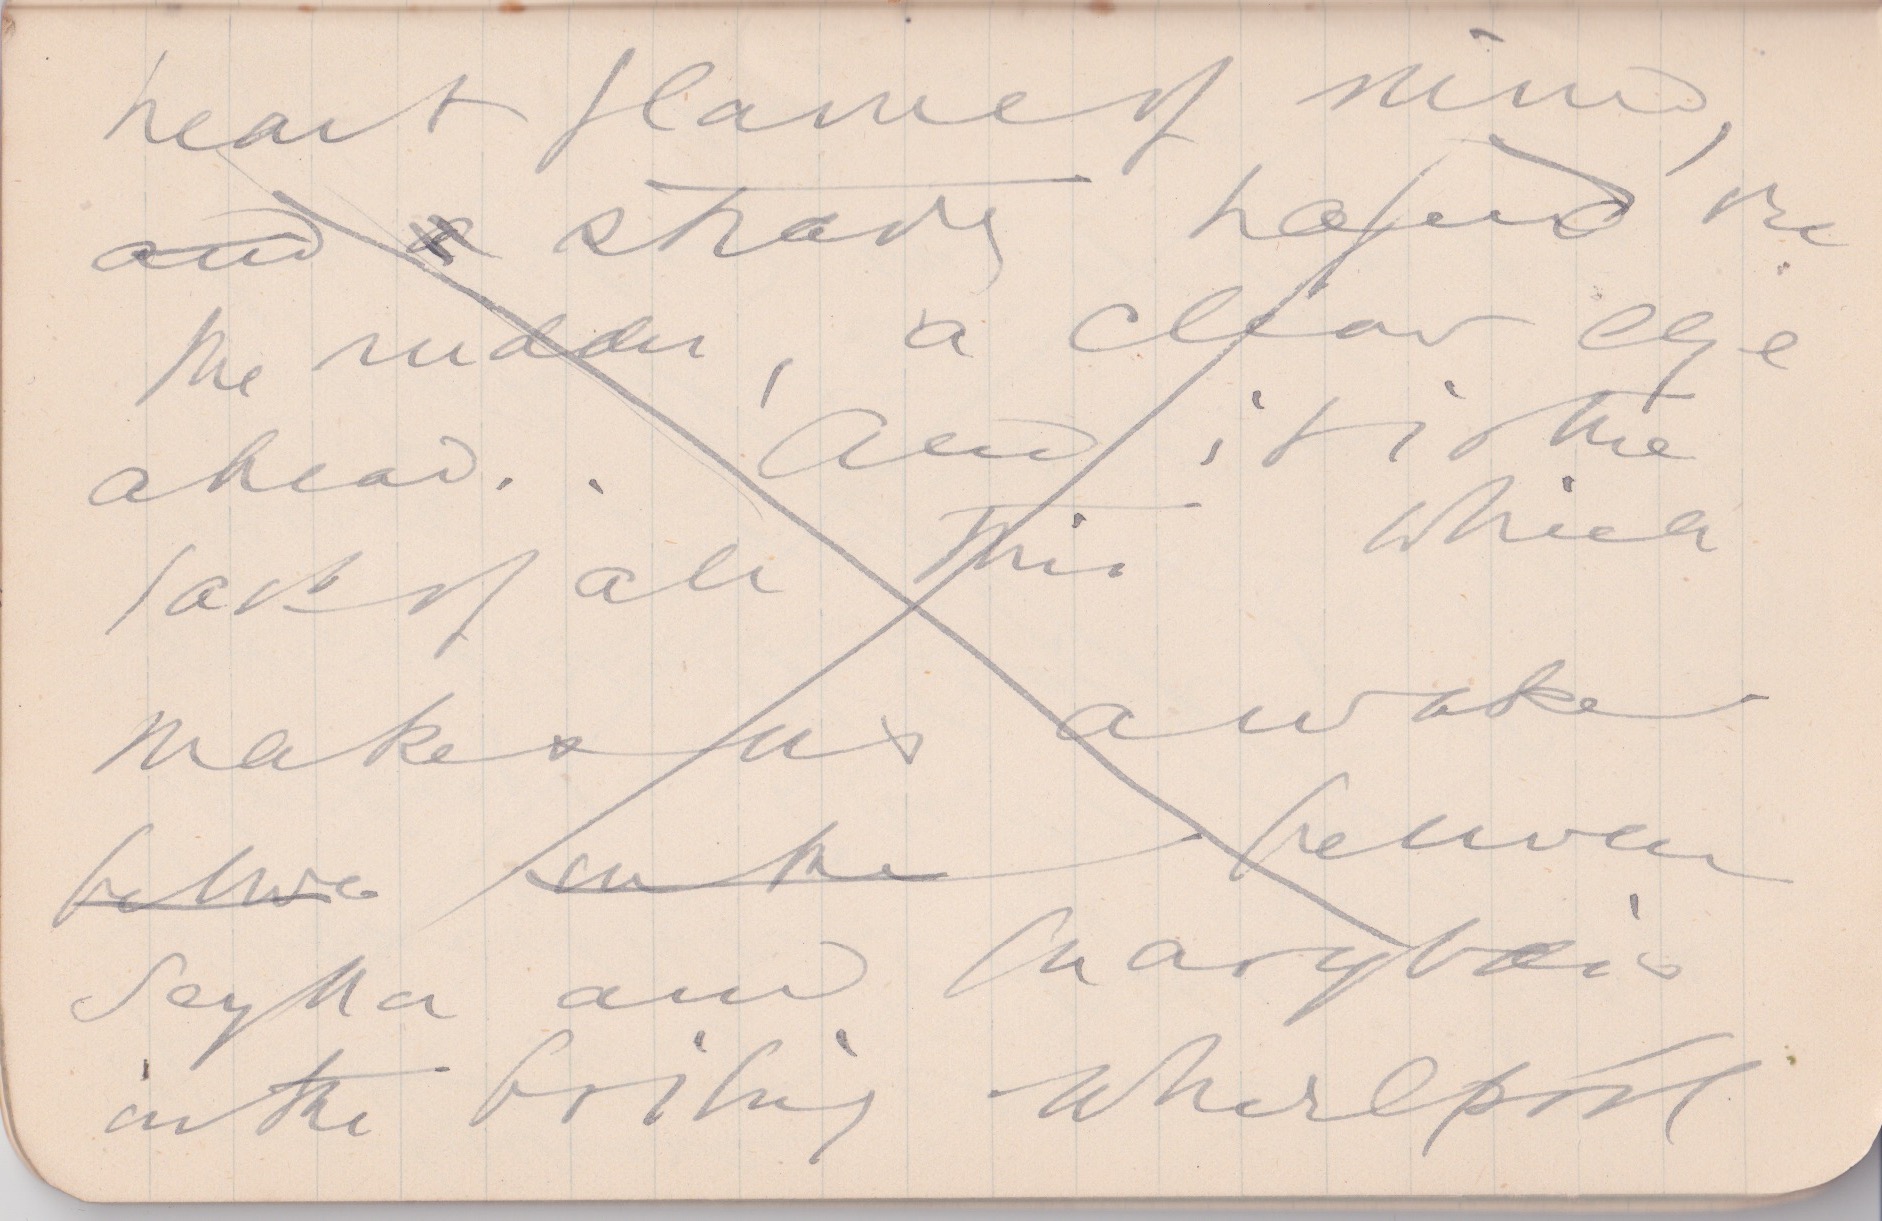 heart flame of mind,
and a steady hand on
the rudder, a clear eye
ahead. And it is the
lack of all this which
makes us awake
betwee in the between
Scylla and Charybdis
in the boiling whirlpool